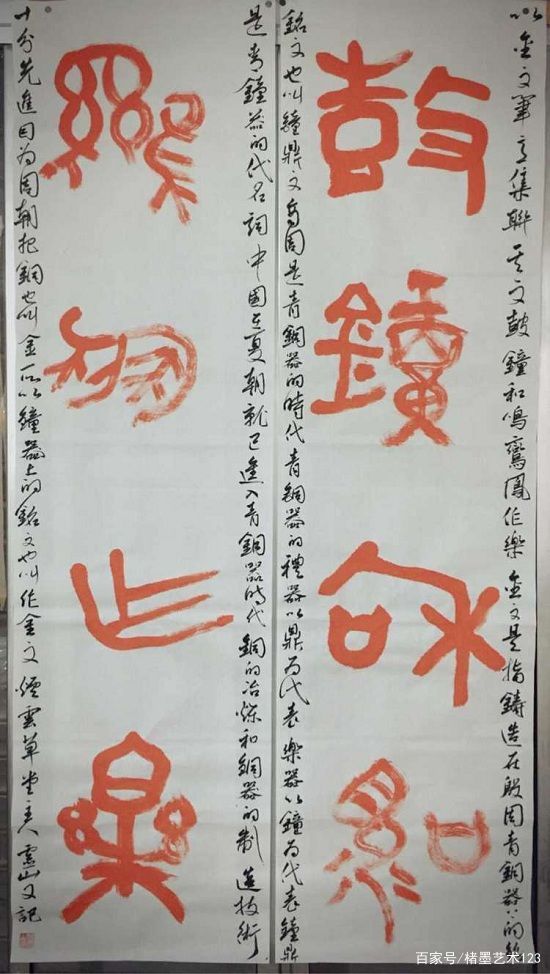 以金文筆意集聯其文鼓鐘和鳴鸞鳳作樂金文是指鑄造在殷周青銅器上的
鼓鐘和鳴
銘文也叫鐘鼎文商周是青銅器的時代青銅器的禮器以鼎為代表樂器以鐘為代表鐘鼎
是青銅器的代名詞中國在夏朝就已進入青銅器時代銅的冶煉和銅器的制造技術
鸞鳳作樂
十分先進因為周朝把銅也叫金所以鐘器上的銘文也叫作金文雲草堂主人靈山又記
百家号/楮墨艺术123